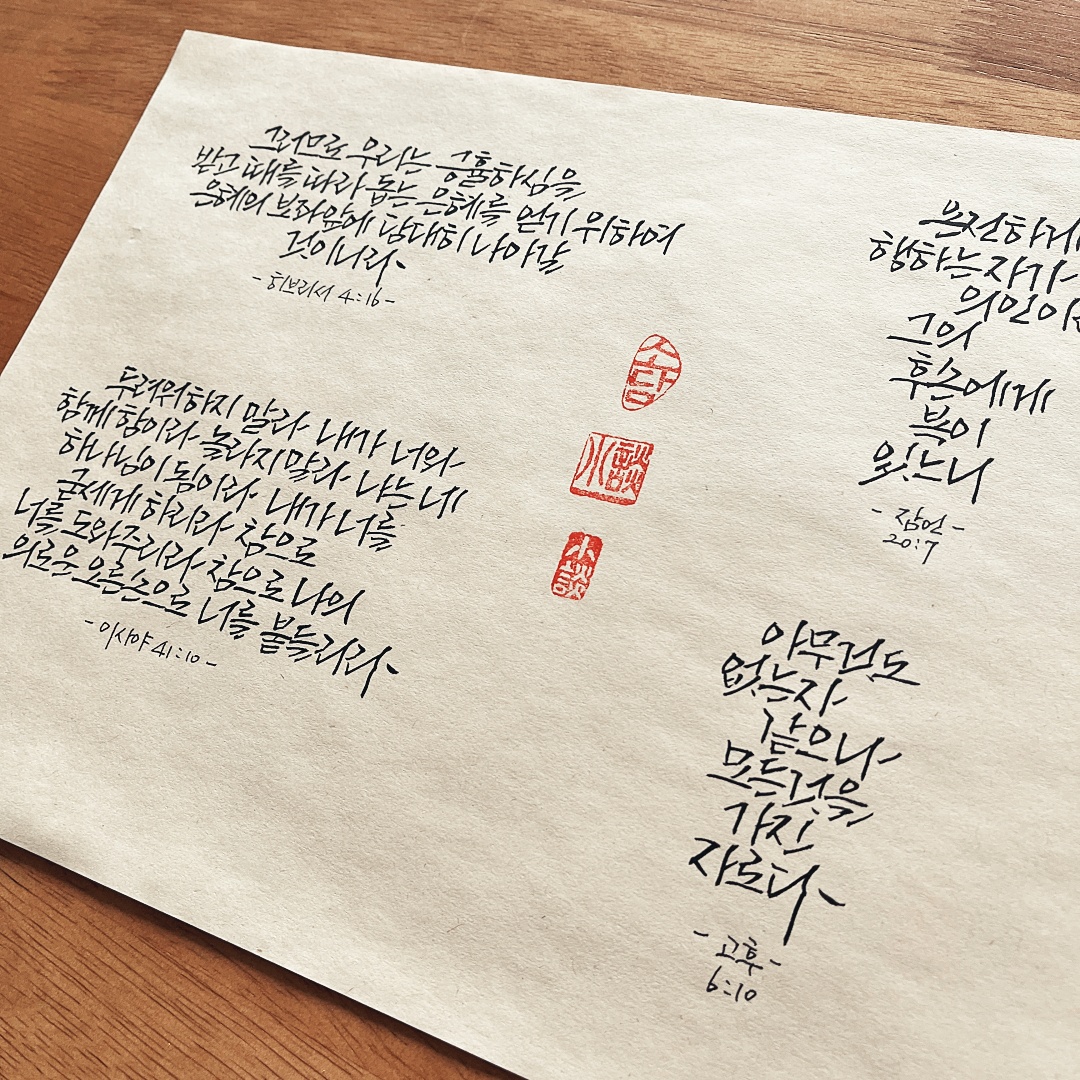 그러므로 우리는 긍휼하심을
받고 때를 따라 돕는 은혜를 얻기 위하여
은혜의 보좌앞에 담대히 나아갈
것이니라
- 히브리서 4:16 -
두려워하지 말라 내가 너와
함께 함이라 놀라지말라 나는 네
하나님이 됨이라 내가 너를
굳세게 하리라 참으로
너를 도와주리라 참으로 나의
의로운 오른손으로 너를 붙들리라
- 이사야 41:10 -
소담
小談
小談
온전하게
행하는 자가
의인이라
그의
후손에게
복이
있느니
- 잠언 -
20:7
아무것도
없는자
같으나
모든것을
가진
자로다
- 고후 -
6:10